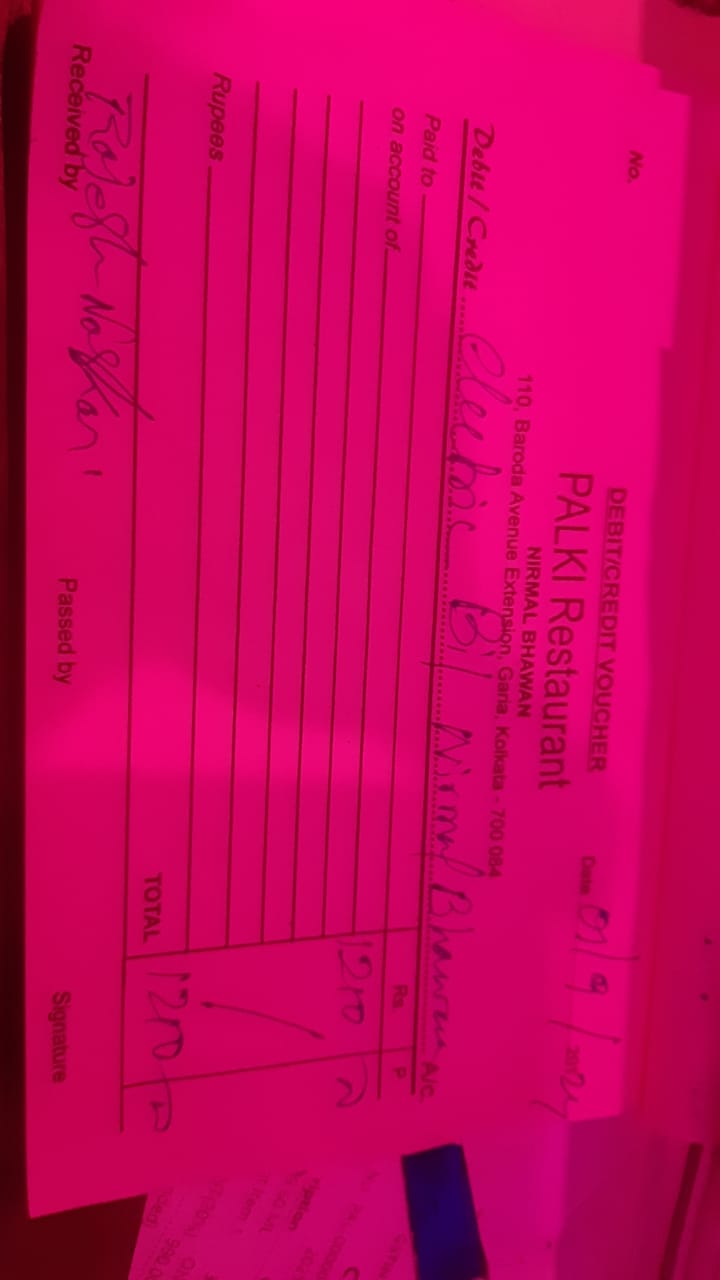 No.
DEBIT/CREDIT VOUCHER
PALKI Restaurant
NIRMAL BHAWAN
110, Baroda Avenue Extension, Garia, Kolkata - 700 084
Date 01/9/2024
Debit / Credit Electric Bil Nirmal Bhawan A/c.
Paid to
on account of
Rs. P
1210
Rupees
TOTAL 1210
Received by Rajesh Naskar
Passed by
Signature